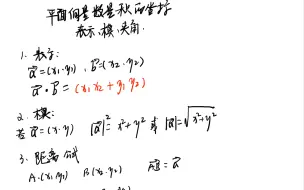 平面向量数量积的坐标
表示、模、夹角.
1. 表示:
a⃗=(x₁,y₁), b⃗=(x₂,y₂)
a⃗·b⃗=(x₁x₂+y₁y₂)
2. 模:
若a⃗=(x,y) |a⃗|²=x²+y² 或 |a⃗|=√x²+y²
3. 距离公式
A(x₁,y₁) B(x₂,y₂) AB⃗=a⃗